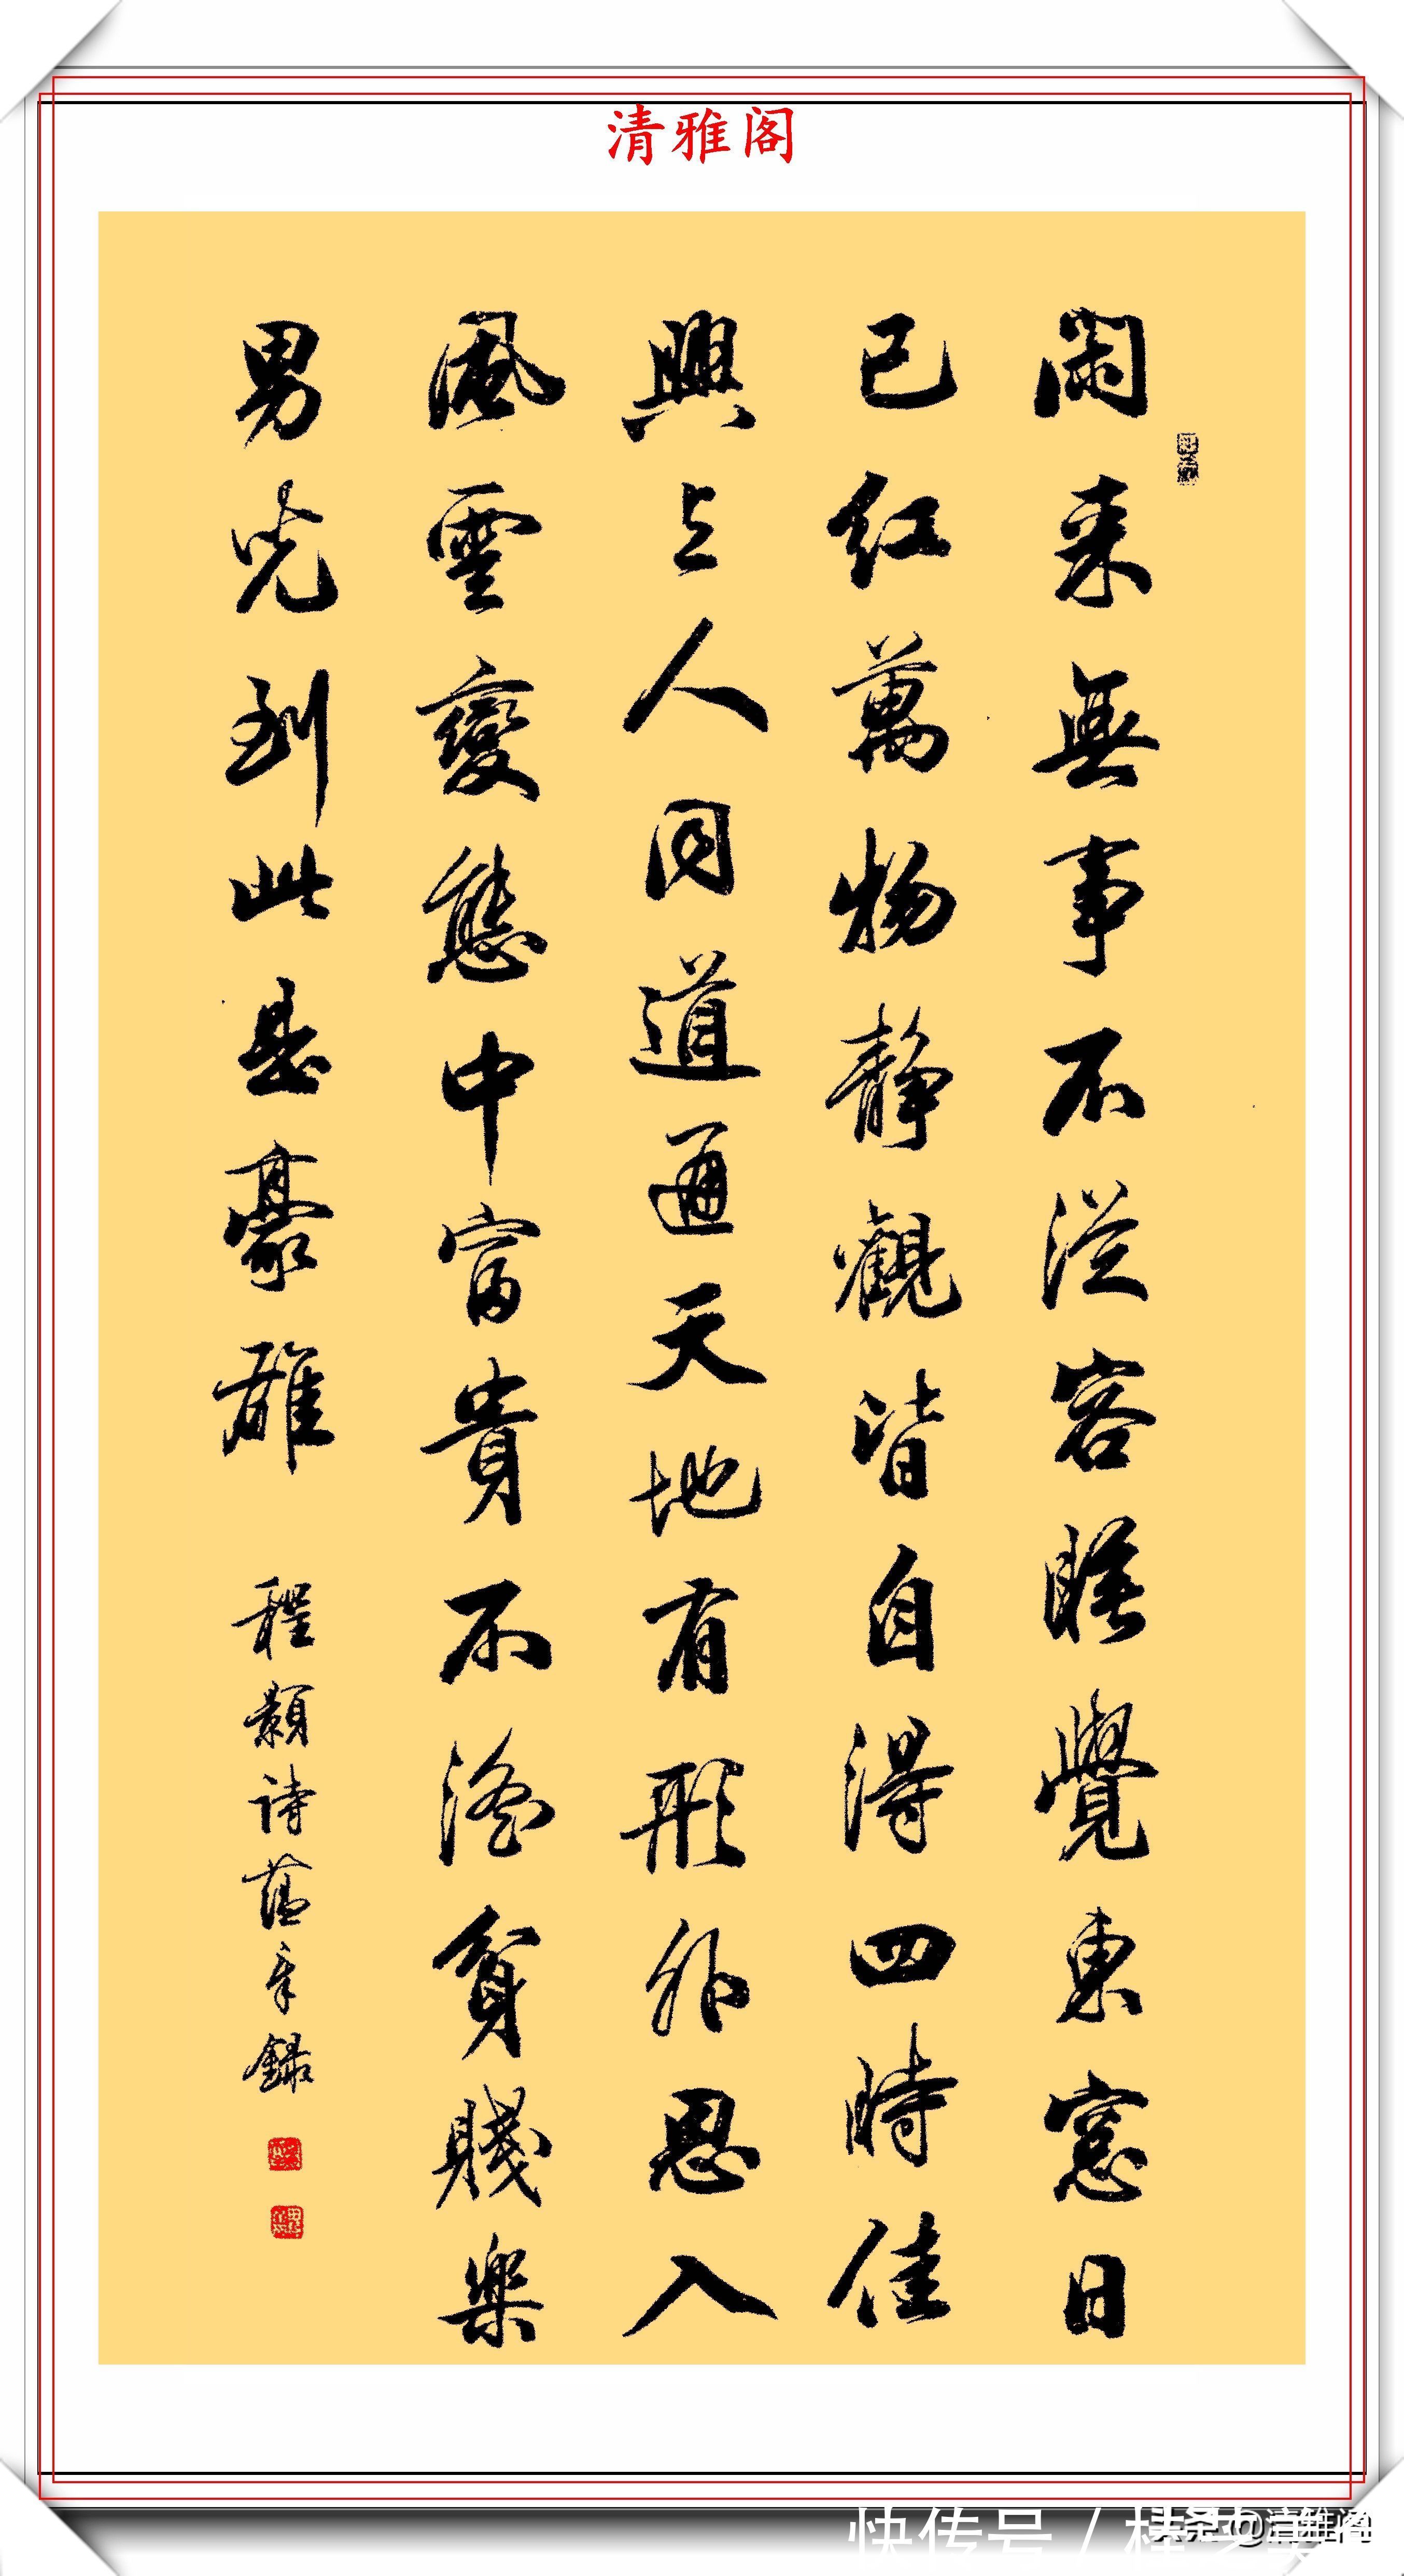 清雅阁
閑来無事不從容睡覺東窓日
已紅萬物静觀皆自得四時佳
興与人同道通天地有形外思入
風雲變態中富貴不淫貧賤樂
男兒到此是豪雄
程顥诗 錄
快传号 /
头条 @清雅阁